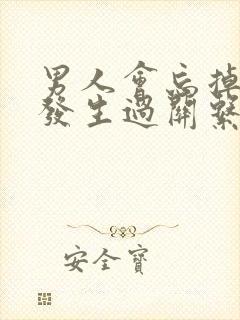 男人會忘掉
發生過關繫
安全寶